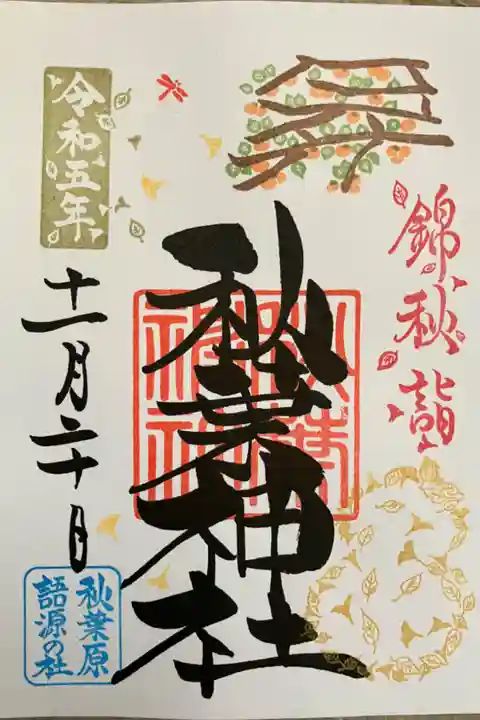 錦秋詣
秋葉神社
秋葉
神社
令和五年
十一月二十日
秋葉原
語源の社